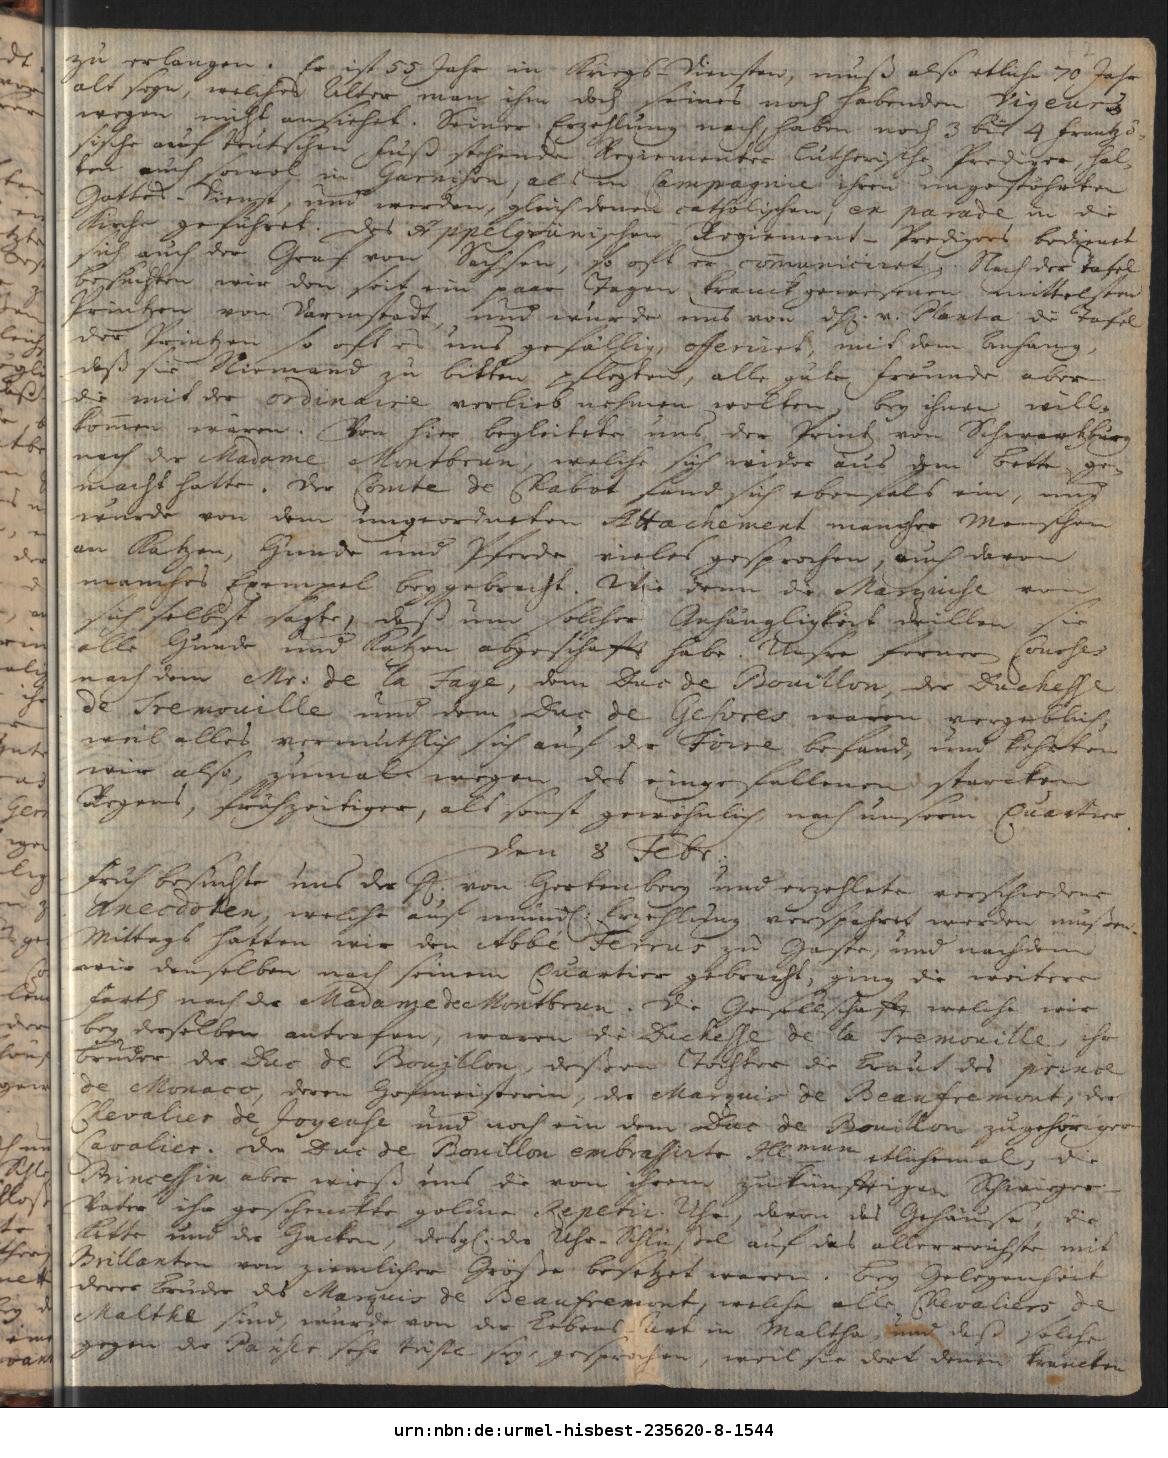 zu erlangen. Er ist 55 Jahr in Kriegs-Diensten, muß also etliche 70 Jahr
alt seyn, welches Alter man ihm doch seines noch habenden Vigeurs
wegen nicht ansiehet. Seiner Erzehlung nach, haben noch 3 biß 4 frantzö-
sische auf teutschen Fuß stehende Regimenter Lutherische Prediger, hal-
ten auch sowol in Garnison, als in Campagnie ihren ungestöhrten
Gottes-Dienst, und werden, gleich denen catholischen, en parade in die
Kirche geführet. Des Appelgrünischen Regiement-Predigers bedienet
sich auch der Graf von Sachsen, so oft er com̄uniciret. Nach der Tafel
besuchten wir den seit ein paar Tagen kranck gewesenen mittelsten
Printzen von Darmstadt, und wurde uns von dH. v. Planta die Tafel
der Printzen so oft es uns gefällig, offeriret, mit dem Anhang,
daß sie Niemand zu bitten pflegten, alle gute Freunde aber
die mit der ordinaire verlieb nehmen wolten, bey ihnen will-
kom̄en wären. Von hier begleitete uns der Printz von Schwartzburg
nach der Madame Montbrun, welche sich wider aus dem Bette ge-
macht hatte. Der Comte de Chabot fand sich ebenfals ein, und
wurde von dem ungeordneten Attachement mancher Menschen
an Katzen, Hunde und Pferde vieles gesprochen, auch davon
manches Exempel beygebracht. Wie denn die Marquise von
sich selbst sagte, daß um solcher Anhängligkeit willen sie
alle Hunde und Katzen abgeschafft habe. Unsre ferner Courses
nach dem Mr: de la Faye, dem Duc de Bouillon, der Duchesse
de Tremouille und dem Duc de Gesvres waren vergeblich,
weil alles vermuthlich sich auf der Foire befand, und kehrten
wir also, zumal wegen des eingefallenen starcken
Regens, frühzeitiger, als sonst gewöhnlich nach unserm Quartier.
den 8 Febr.
Früh besuchte uns der H. von Gertenberg und erzehlete verschiedene
Anecdoten, welche auf mündl: Erzehlung verspahret werden müßen.
Mittags hatten wir den Abbé Ferrus zu Gaste, und nachdem
wir denselben nach seinem Quartier gebracht, ging die weitere
Farth nach der Madame de Montbrun. Die Gesellschafft welche wir
bey derselben antrafen, waren die Duchesse de la Tremouille, ihr
Bruder der Duc de Bouillon, deßen Tochter die Braut des prince
de Monaco, deren Hofmeisterin, der Marquis de Beaufremont, der
Chevalier de Joyeuse und noch ein dem Duc de Bouillon zugehöriger
Cavalier. Der Duc de Bouillon embrassirte etlichemal, die
Princessin aber wieß uns die von ihrem zukünfftigen Schwieger-
Vater ihr geschenckte goldne Repetir-Uhr, daran das Gehäuse, die
Kette und der Hacken, desgl: der Uhr-Schlüßel auf das allerreichste mit
Brillanten von ziemlicher Größe besetzet waren. Bey Gelegenheit
derer Brüder des Marquis de Beaufremont, welche alle Chevaliers de
Malthe sind, wurde von der Lebens-Art in Maltha, und daß solche
gegen die Pariser sehr triste sey, gesprochen, weil sie dort denen Krancken